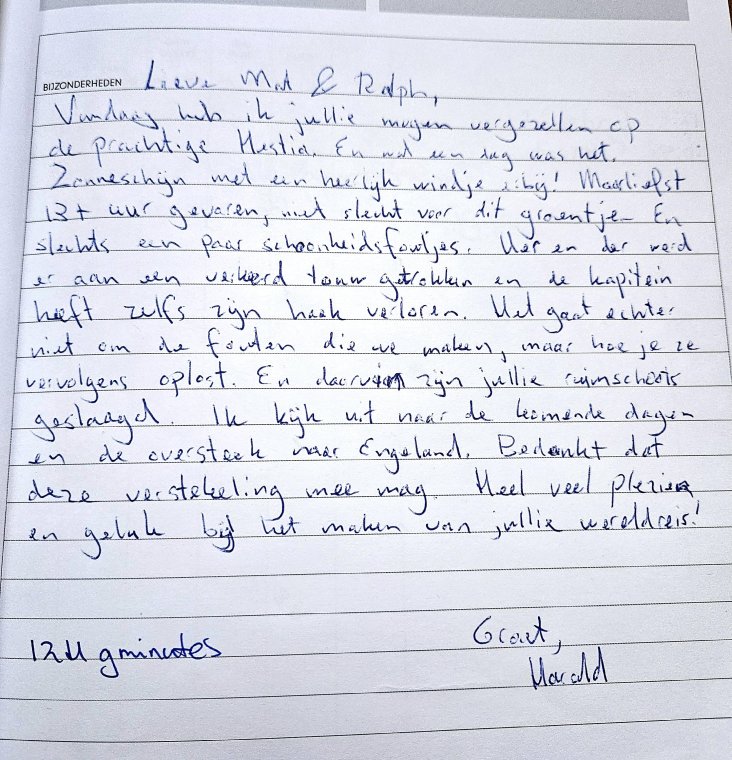 BIJZONDERHEDEN Lieve Mat & Ralph,
Vandaag heb ik jullie mogen vergezellen op
de prachtige Hestia. En wat een dag was het.
Zonneschijn met een heerlijk windje erbij! Maarliefst
13+ uur gevaren, niet slecht voor dit groentje. En
slechts een paar schoonheidsfoutjes. Her en der werd
er aan een verkeerd touw getrokken en de kapitein
heeft zelfs zijn haak verloren. Het gaat echter
niet om de fouten die we maken, maar hoe je ze
vervolgens oplost. En daarvan zijn jullie ruimschoots
geslaagd. Ik kijk uit naar de komende dagen
en de oversteek naar Engeland. Bedankt dat
deze verstekeling mee mag. Heel veel plezier
en geluk bij het maken van jullie wereldreis!
12u 9minutes
Groet,
Harald